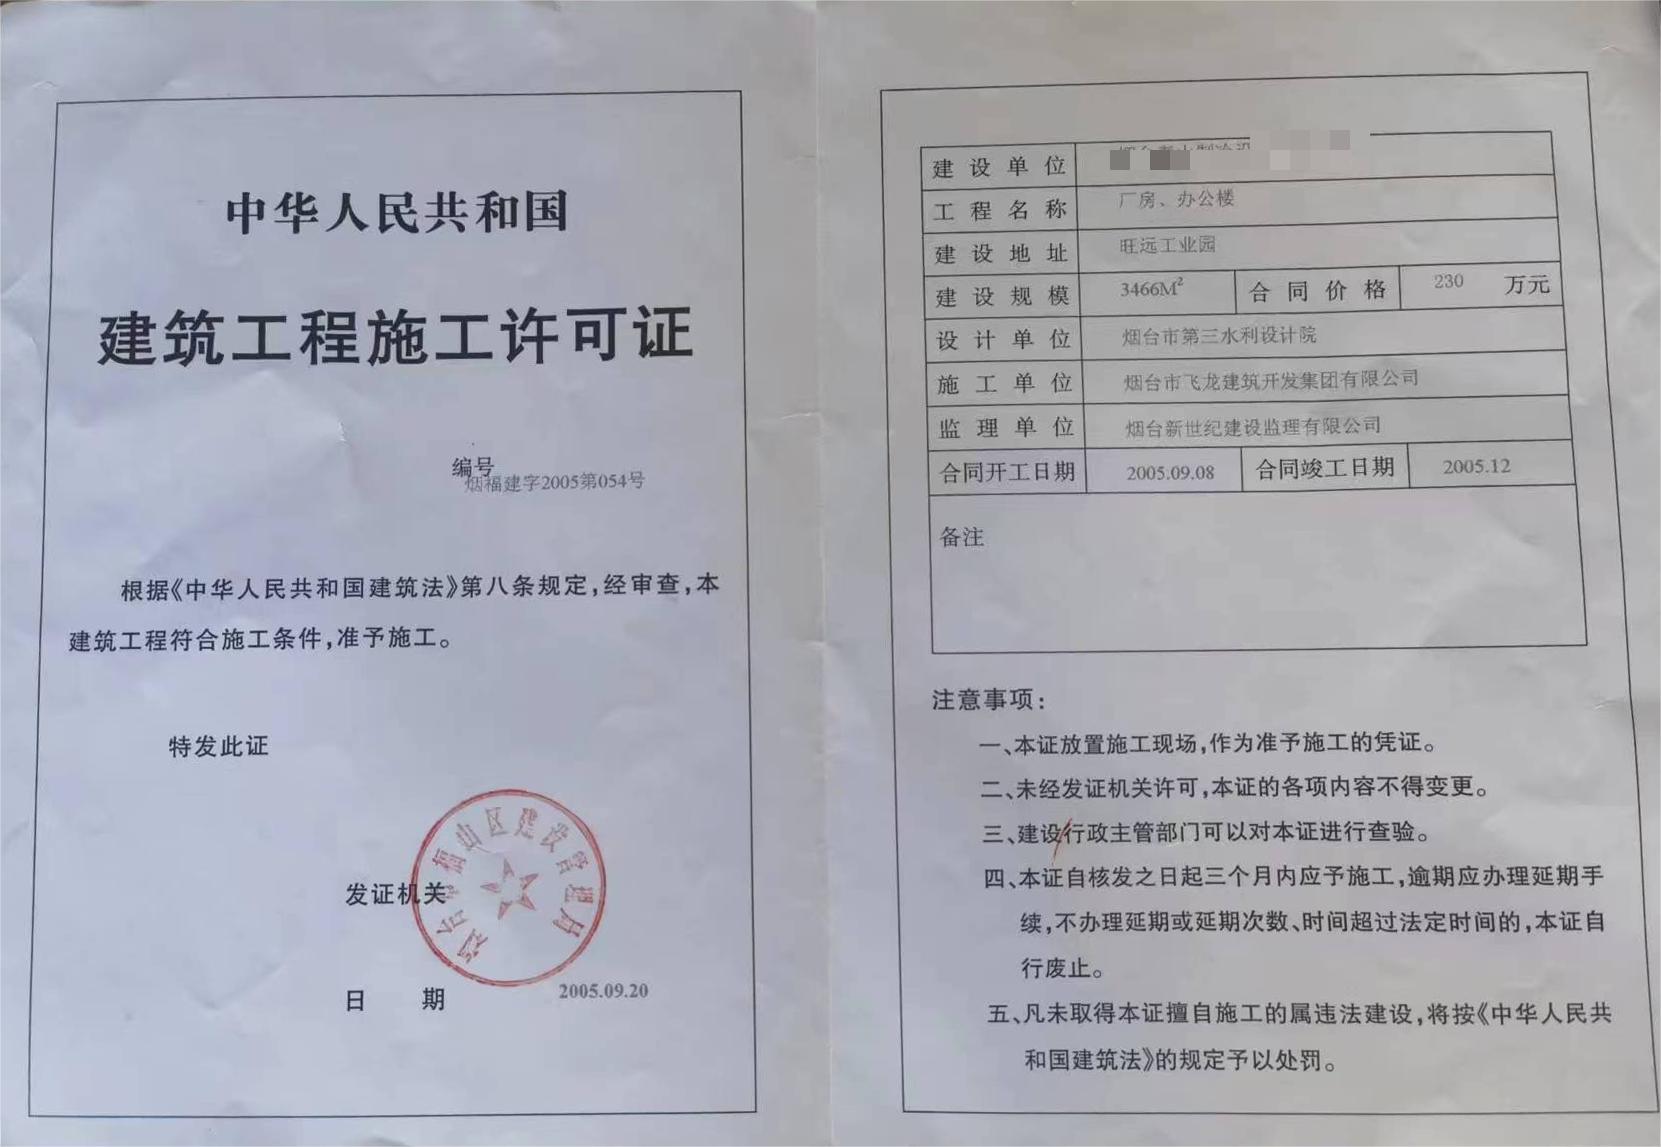 中华人民共和国
建筑工程施工许可证
编号
烟福建字2005第054号
根据《中华人民共和国建筑法》第八条规定,经审查,本
建筑工程符合施工条件,准予施工。
特发此证
发证机关
烟台市福山区建设管理局
日 期 2005.09.20
建设单位
工程名称 厂房、办公楼
建设地址 旺远工业园
建设规模 3466M² 合同价格 230 万元
设计单位 烟台市第三水利设计院
施工单位 烟台市飞龙建筑开发集团有限公司
监理单位 烟台新世纪建设监理有限公司
合同开工日期 2005.09.08 合同竣工日期 2005.12
备注
注意事项:
一、本证放置施工现场,作为准予施工的凭证。
二、未经发证机关许可,本证的各项内容不得变更。
三、建设行政主管部门可以对本证进行查验。
四、本证自核发之日起三个月内应予施工,逾期应办理延期手
续,不办理延期或延期次数、时间超过法定时间的,本证自
行废止。
五、凡未取得本证擅自施工的属违法建设,将按《中华人民共
和国建筑法》的规定予以处罚。